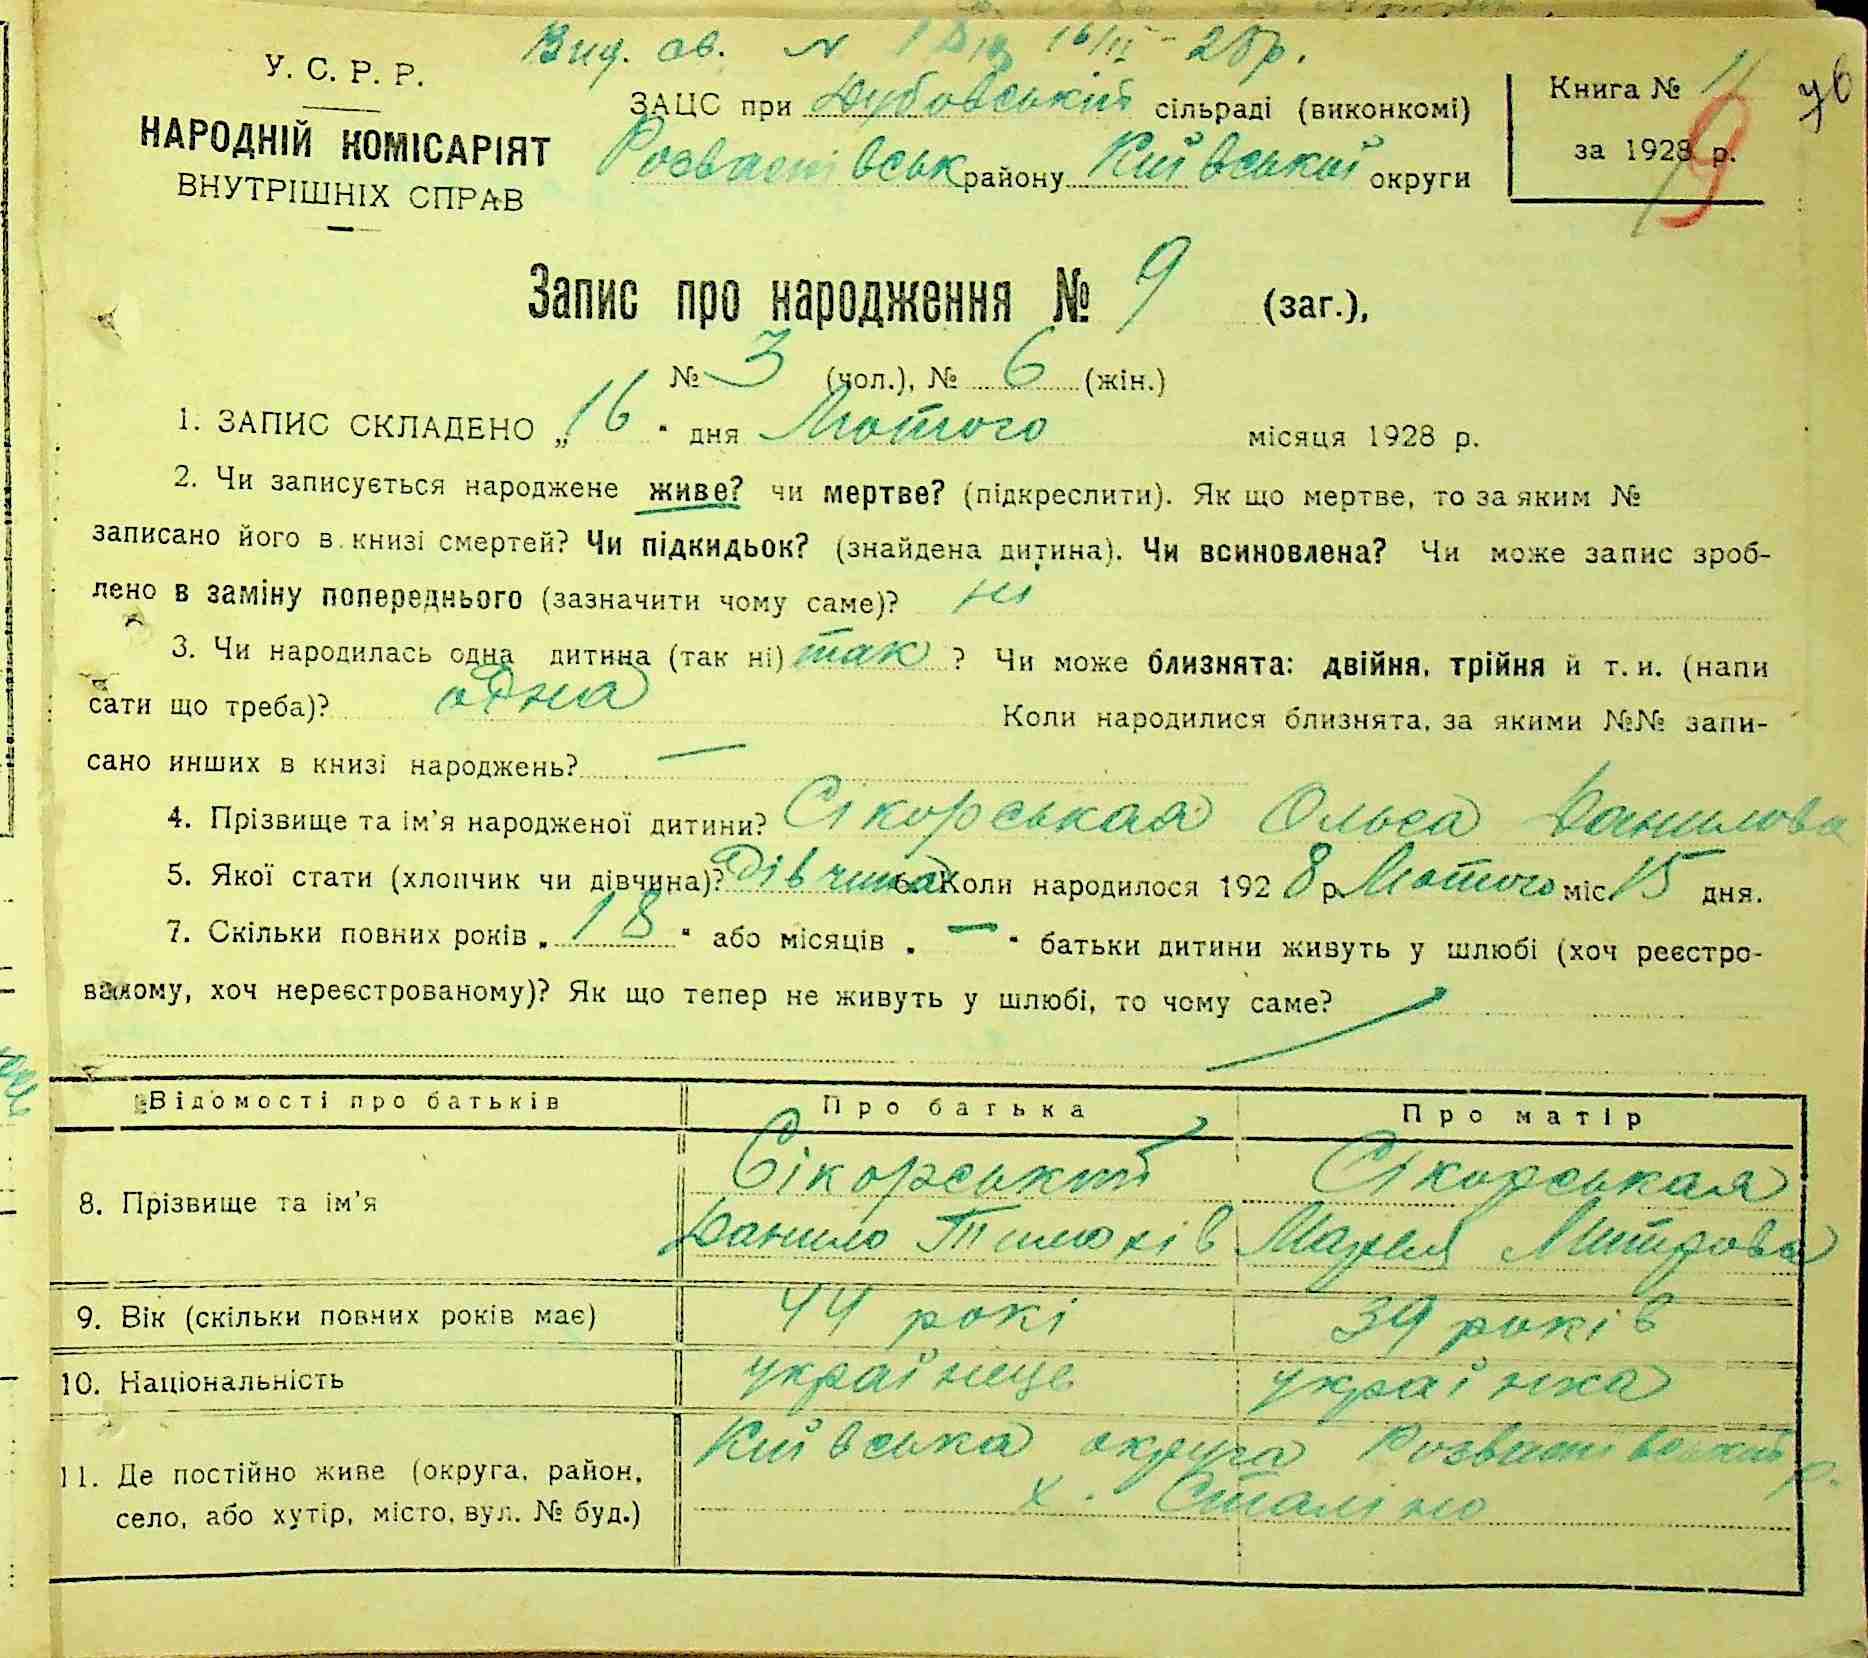 Вид. св. N 16/II - 28 р.
У. С. Р. Р.
НАРОДНІЙ КОМІСАРІЯТ
ВНУТРІШНІХ СПРАВ
ЗАЦС при Дубовський сільраді (виконкомі)
Розважівськ району Київський округи
Книга № 11
за 1928 р.
9
Запис про народження № 9 (заг.),
№ 3 (чол.), № 6 (жін.)
1. ЗАПИС СКЛАДЕНО „16“ дня Лютого місяця 1928 р.
2. Чи записується народжене живе? чи мертве? (підкреслити). Як що мертве, то за яким №
записано його в книзі смертей? Чи підкидьок? (знайдена дитина). Чи всиновлена? Чи може запис зроб-
лено в заміну попереднього (зазначити чому саме)? ні
3. Чи народилась одна дитина (так ні) так ? Чи може близнята: двійня, трійня й т. и. (напи
сати що треба)? одна Коли народилися близнята, за якими №№ запи-
сано инших в книзі народжень? —
4. Прізвище та ім’я народженої дитини? Сікорськая Ольга Данилова
5. Якої стати (хлопчик чи дівчина)? дівчина 6. Коли народилося 1928 р. Лютого міс. 15 дня.
7. Скільки повних років „18“ або місяців „—“ батьки дитини живуть у шлюбі (хоч реєстро-
ваному, хоч нереєстрованому)? Як що тепер не живуть у шлюбі, то чому саме?
Відомості про батьків Про батька Про матір
8. Прізвище та ім’я Сікорський Данило Сікорськая Марія Митрова
9. Вік (скільки повних років має) 44 рокі 39 років
10. Національність українце українка
11. Де постійно живе (округа, район, Київська округа Розважівський р.
село, або хутір, місто, вул. № буд.) х. Сталіно